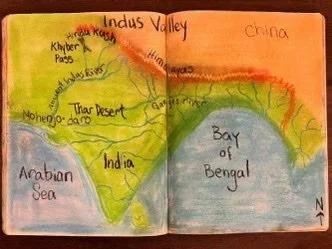 Indus Valley
Hindu Kush
Khyber
Pass
China
Himalayas
Ancient Indus River
Ganges River
Mohenjo-daro
Thar Desert
India
Arabian
Sea
Bay
of
Bengal
N